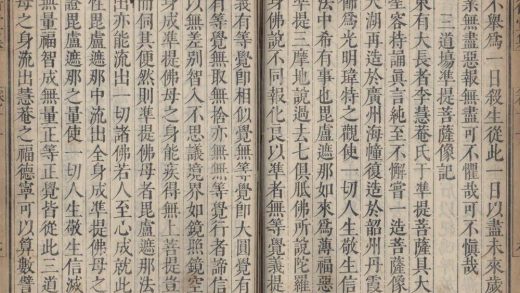 不舉爲一日殺生從此一日以盡未來歲
無盡惡報無盡可不懼哉可不愼哉
三道場準提菩薩像記
東有大長者李慧菴氏于準提菩薩具大
持誦眞言純至不懈嘗一造菩薩像
大湖再造於廣州海幢復造於韶州丹霞
爲光明瑋特之觀使一切人生敬信
法中希有事也毘盧遮那如來爲薄福惡
準提三摩地說過去七俱胝佛所說陀羅
身佛說不同報化良以準者無等覺義提
義有等覺卽相似覺無等覺卽大圓覺有
等覺無取無捨亦無無等覺行者諦信
以無差別智入不思議境界如鏡鏡空
身成準提佛母之身能疾得無上菩提豈
而伺其便然則準提佛母者毘盧遮那法
出亦能流出一切諸佛若人至心成就此
毘盧遮那中流出全身成準提佛母
證毘盧遮那之量使一切人生敬信滅
無量福智成無量正等正覺皆從此三道
母之身流出慧菴之福德寧可以算數譬